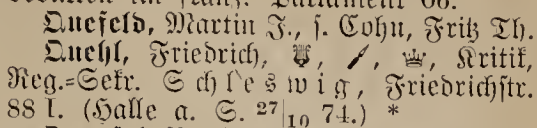 Quefeld, Martin J., s. Cohn, Fritz Th.
Quehl, Friedrich, Kritik,
Reg.=Sekr. Schleswig, Friedrichstr.
88 I. (Halle a. S. 27/10 74.) *